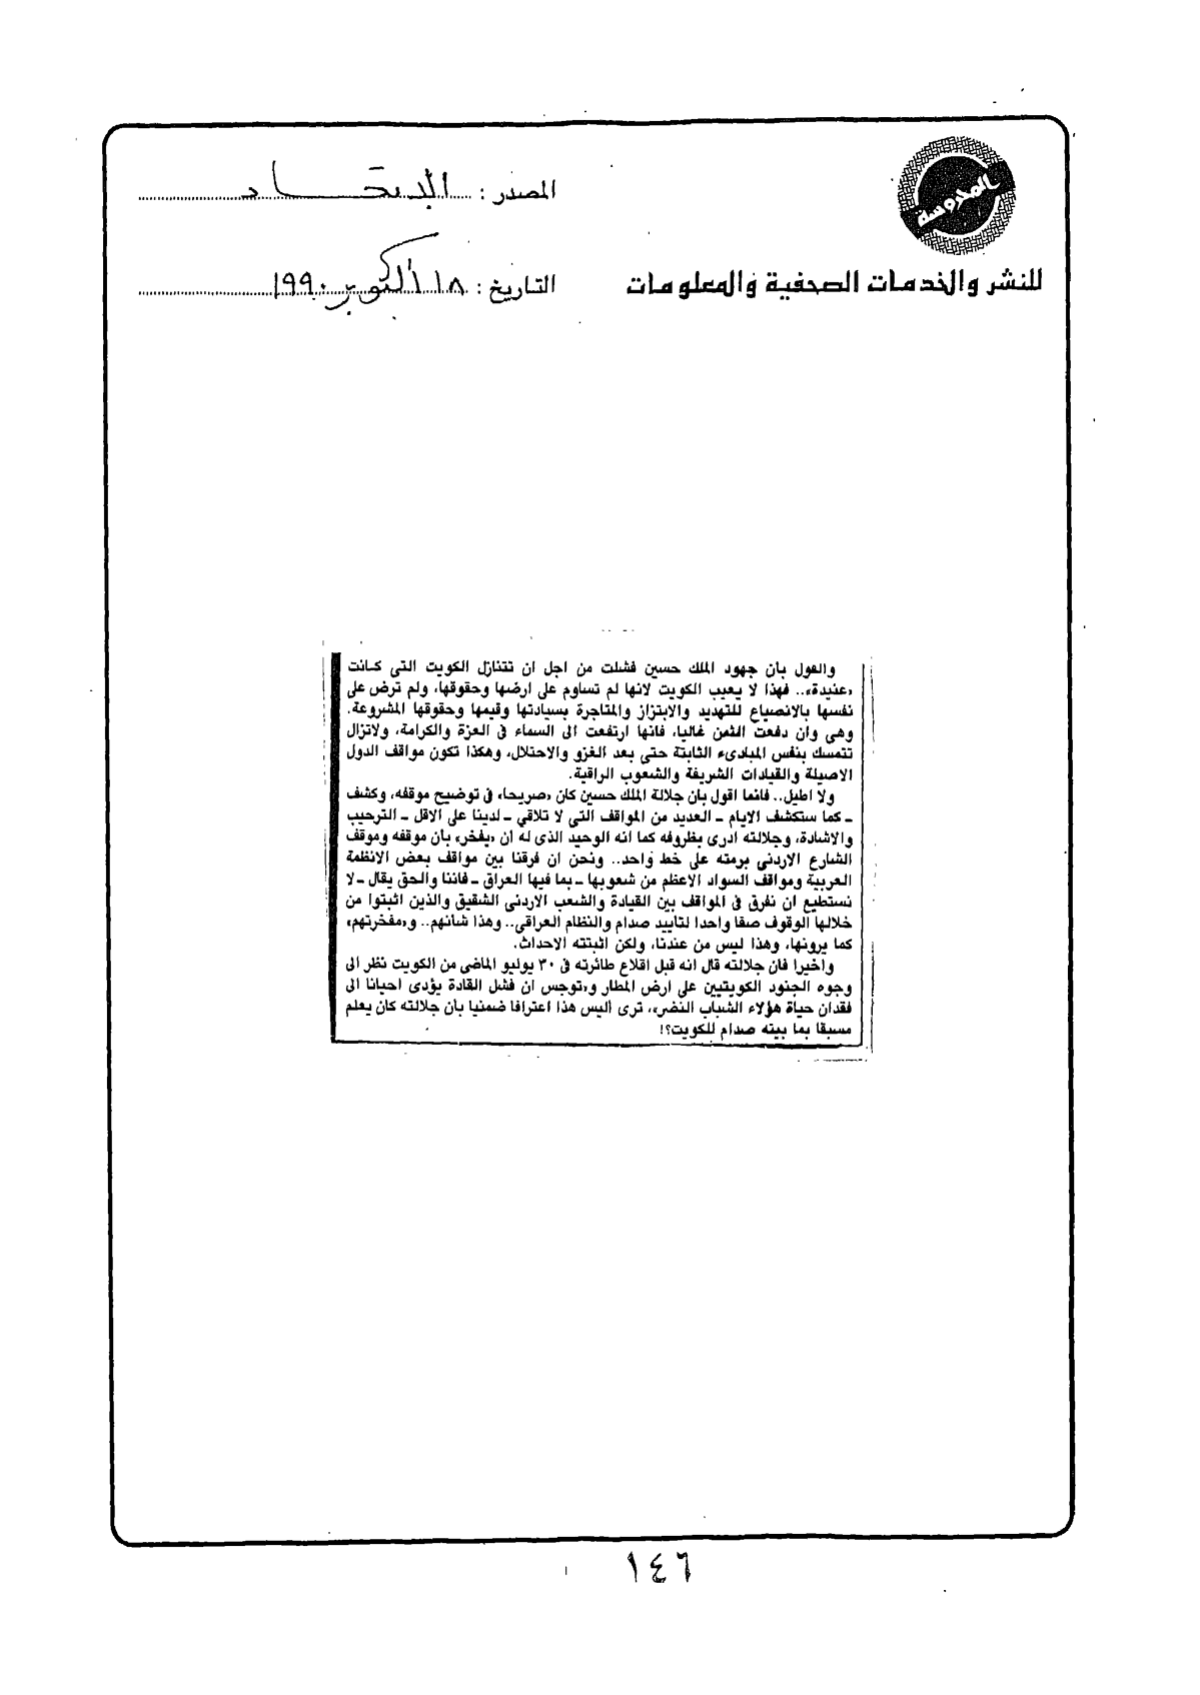 المحروسة
للنشر والخدمات الصحفية والمعلومات
المصدر : الاتحاد
التاريخ : ١٨ أكتوبر ١٩٩٠
والقول بان جهود الملك حسين فشلت من اجل ان تتنازل الكويت التى كانت
«عنيدة».. فهذا لا يعيب الكويت لانها لم تساوم على ارضها وحقوقها، ولم ترض على
نفسها بالانصياع للتهديد والابتزاز والمتاجرة بسيادتها وقيمها وحقوقها المشروعة.
وهى وان دفعت الثمن غاليا، فانها ارتفعت الى السماء فى العزة والكرامة، ولاتزال
تتمسك بنفس المبادىء الثابتة حتى بعد الغزو والاحتلال، وهكذا تكون مواقف الدول
الاصيلة والقيادات الشريفة والشعوب الراقية.
ولا اطيل.. فانما اقول بان جلالة الملك حسين كان «صريحا» فى توضيح موقفه، وكشف
ـ كما ستكشف الايام ـ العديد من المواقف التى لا تلاقي ـ لدينا على الاقل ـ الترحيب
والاشادة، وجلالته ادرى بظروفه كما انه الوحيد الذى له ان «يفخر» بان موقفه وموقف
الشارع الاردنى برمته على خط واحد.. ونحن ان فرقنا بين مواقف بعض الانظمة
العربية ومواقف السواد الاعظم من شعوبها ـ بما فيها العراق ـ فاننا والحق يقال ـ لا
نستطيع ان نفرق فى المواقف بين القيادة والشعب الاردنى الشقيق والذين اثبتوا من
خلالها الوقوف صفا واحدا لتأييد صدام والنظام العراقى.. وهذا شانهم.. و«مفخرتهم»
كما يرونها، وهذا ليس من عندنا، ولكن اثبتته الاحداث.
واخيرا فان جلالته قال انه قبل اقلاع طائرته فى ٣٠ يوليو الماضى من الكويت نظر الى
وجوه الجنود الكويتيين على أرض المطار و«توجس ان فشل القادة يؤدى احيانا الى
فقدان حياة هؤلاء الشباب النضر»، ترى أليس هذا اعترافا ضمنيا بأن جلالته كان يعلم
مسبقا بما بيته صدام للكويت؟!
١٤٦